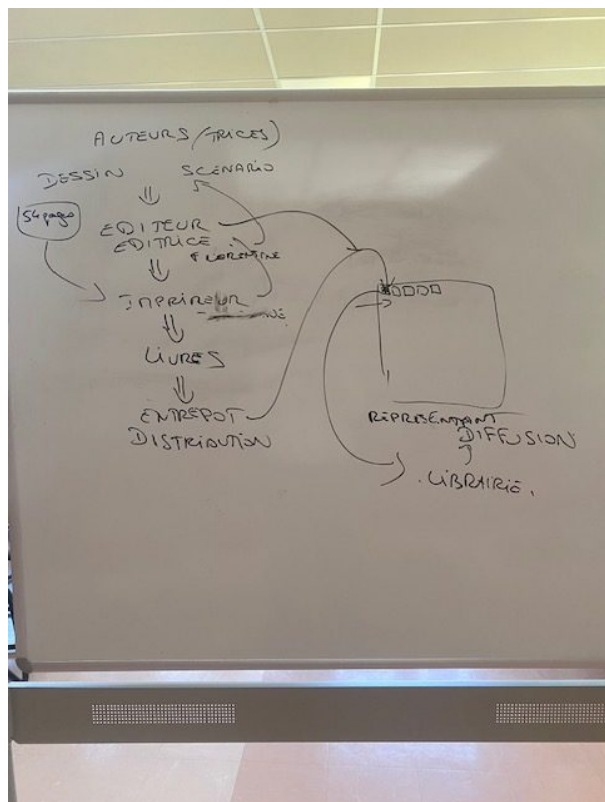 AUTEURS (TRICES)
DESSIN
SCENARIO
54 pages
EDITEUR
EDITRICE
FLORENTINE
IMPRIMEUR
LIVRES
ENTREPOT
DISTRIBUTION
REPRESENTANT
DIFFUSION
LIBRAIRIE.